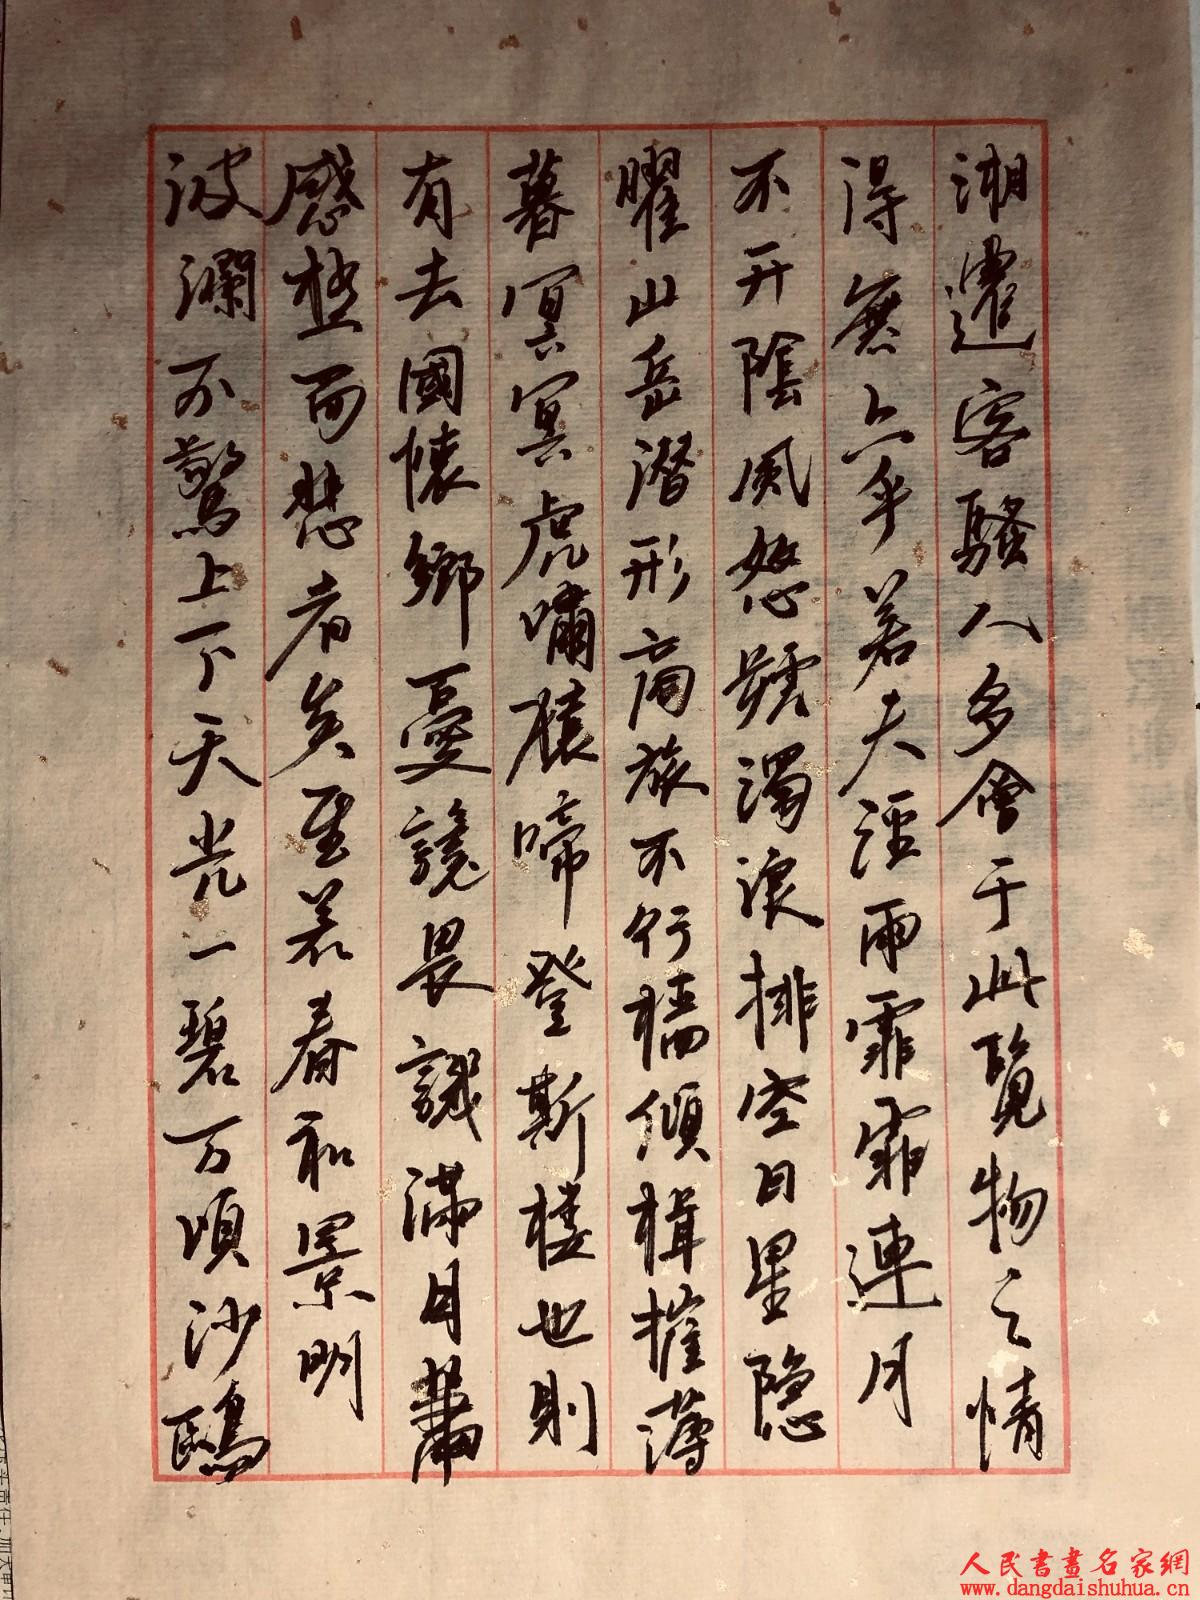 湘遷客騷人多會于此覽物之情
得無異乎若夫淫雨霏霏連月
不开陰風怒號濁浪排空日星隐
曜山岳潛形商旅不行檣傾楫摧薄
暮冥冥虎嘯猿啼登斯楼也則
有去國懷鄉憂讒畏譏滿目蕭
感極而悲者矣至若春和景明
波瀾不驚上下天光一碧万頃沙鷗
人民書畫名家網
www.dangdaishuhua.cn